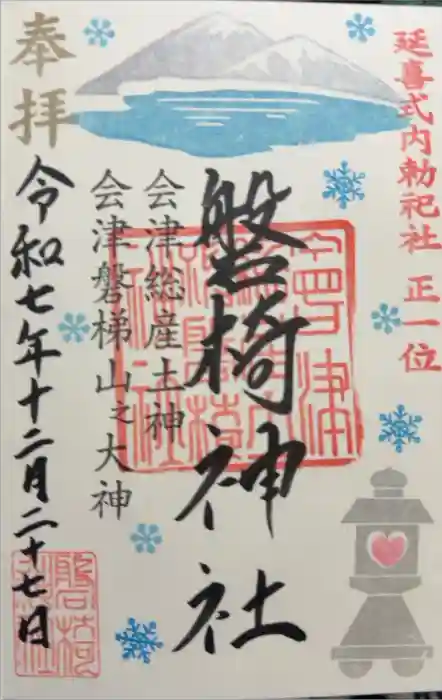 延喜式内勅祀社 正一位
盤椅神社
会津総産土神
会津磐梯山之大神
奉拝
令和七年十二月二十七日